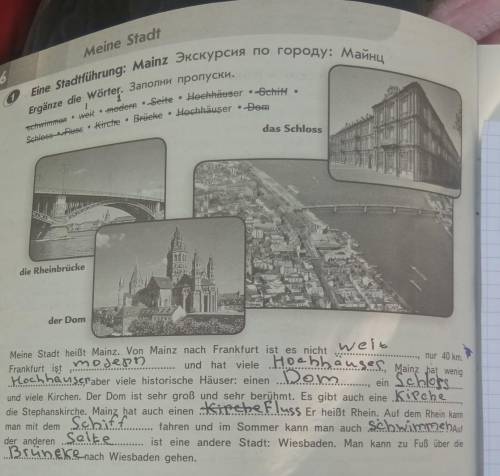 6
Meine Stadt
1 Eine Stadtführung: Mainz Экскурсия по городу: Майнц
Ergänze die Wörter. Заполни пропуски.
schwimmen • weit • modern • Seite • Hochhäuser • Schiff •
Schloss • Fluss • Kirche • Brücke • Hochhäuser • Dom
das Schloss
die Rheinbrücke
der Dom
Meine Stadt heißt Mainz. Von Mainz nach Frankfurt ist es nicht weit, nur 40 km.
Frankfurt ist modern und hat viele Hochhäuser. Mainz hat wenig
Hochhäuser aber viele historische Häuser: einen Dom, ein Schloss
und viele Kirchen. Der Dom ist sehr groß und sehr berühmt. Es gibt auch eine Kirche
die Stephanskirche. Mainz hat auch einen Kirche Fluss Er heißt Rhein. Auf dem Rhein kann
man mit dem Schiff fahren und im Sommer kann man auch schwimmen Auf
der anderen Seite ist eine andere Stadt: Wiesbaden. Man kann zu Fuß über die
Brüneke nach Wiesbaden gehen.